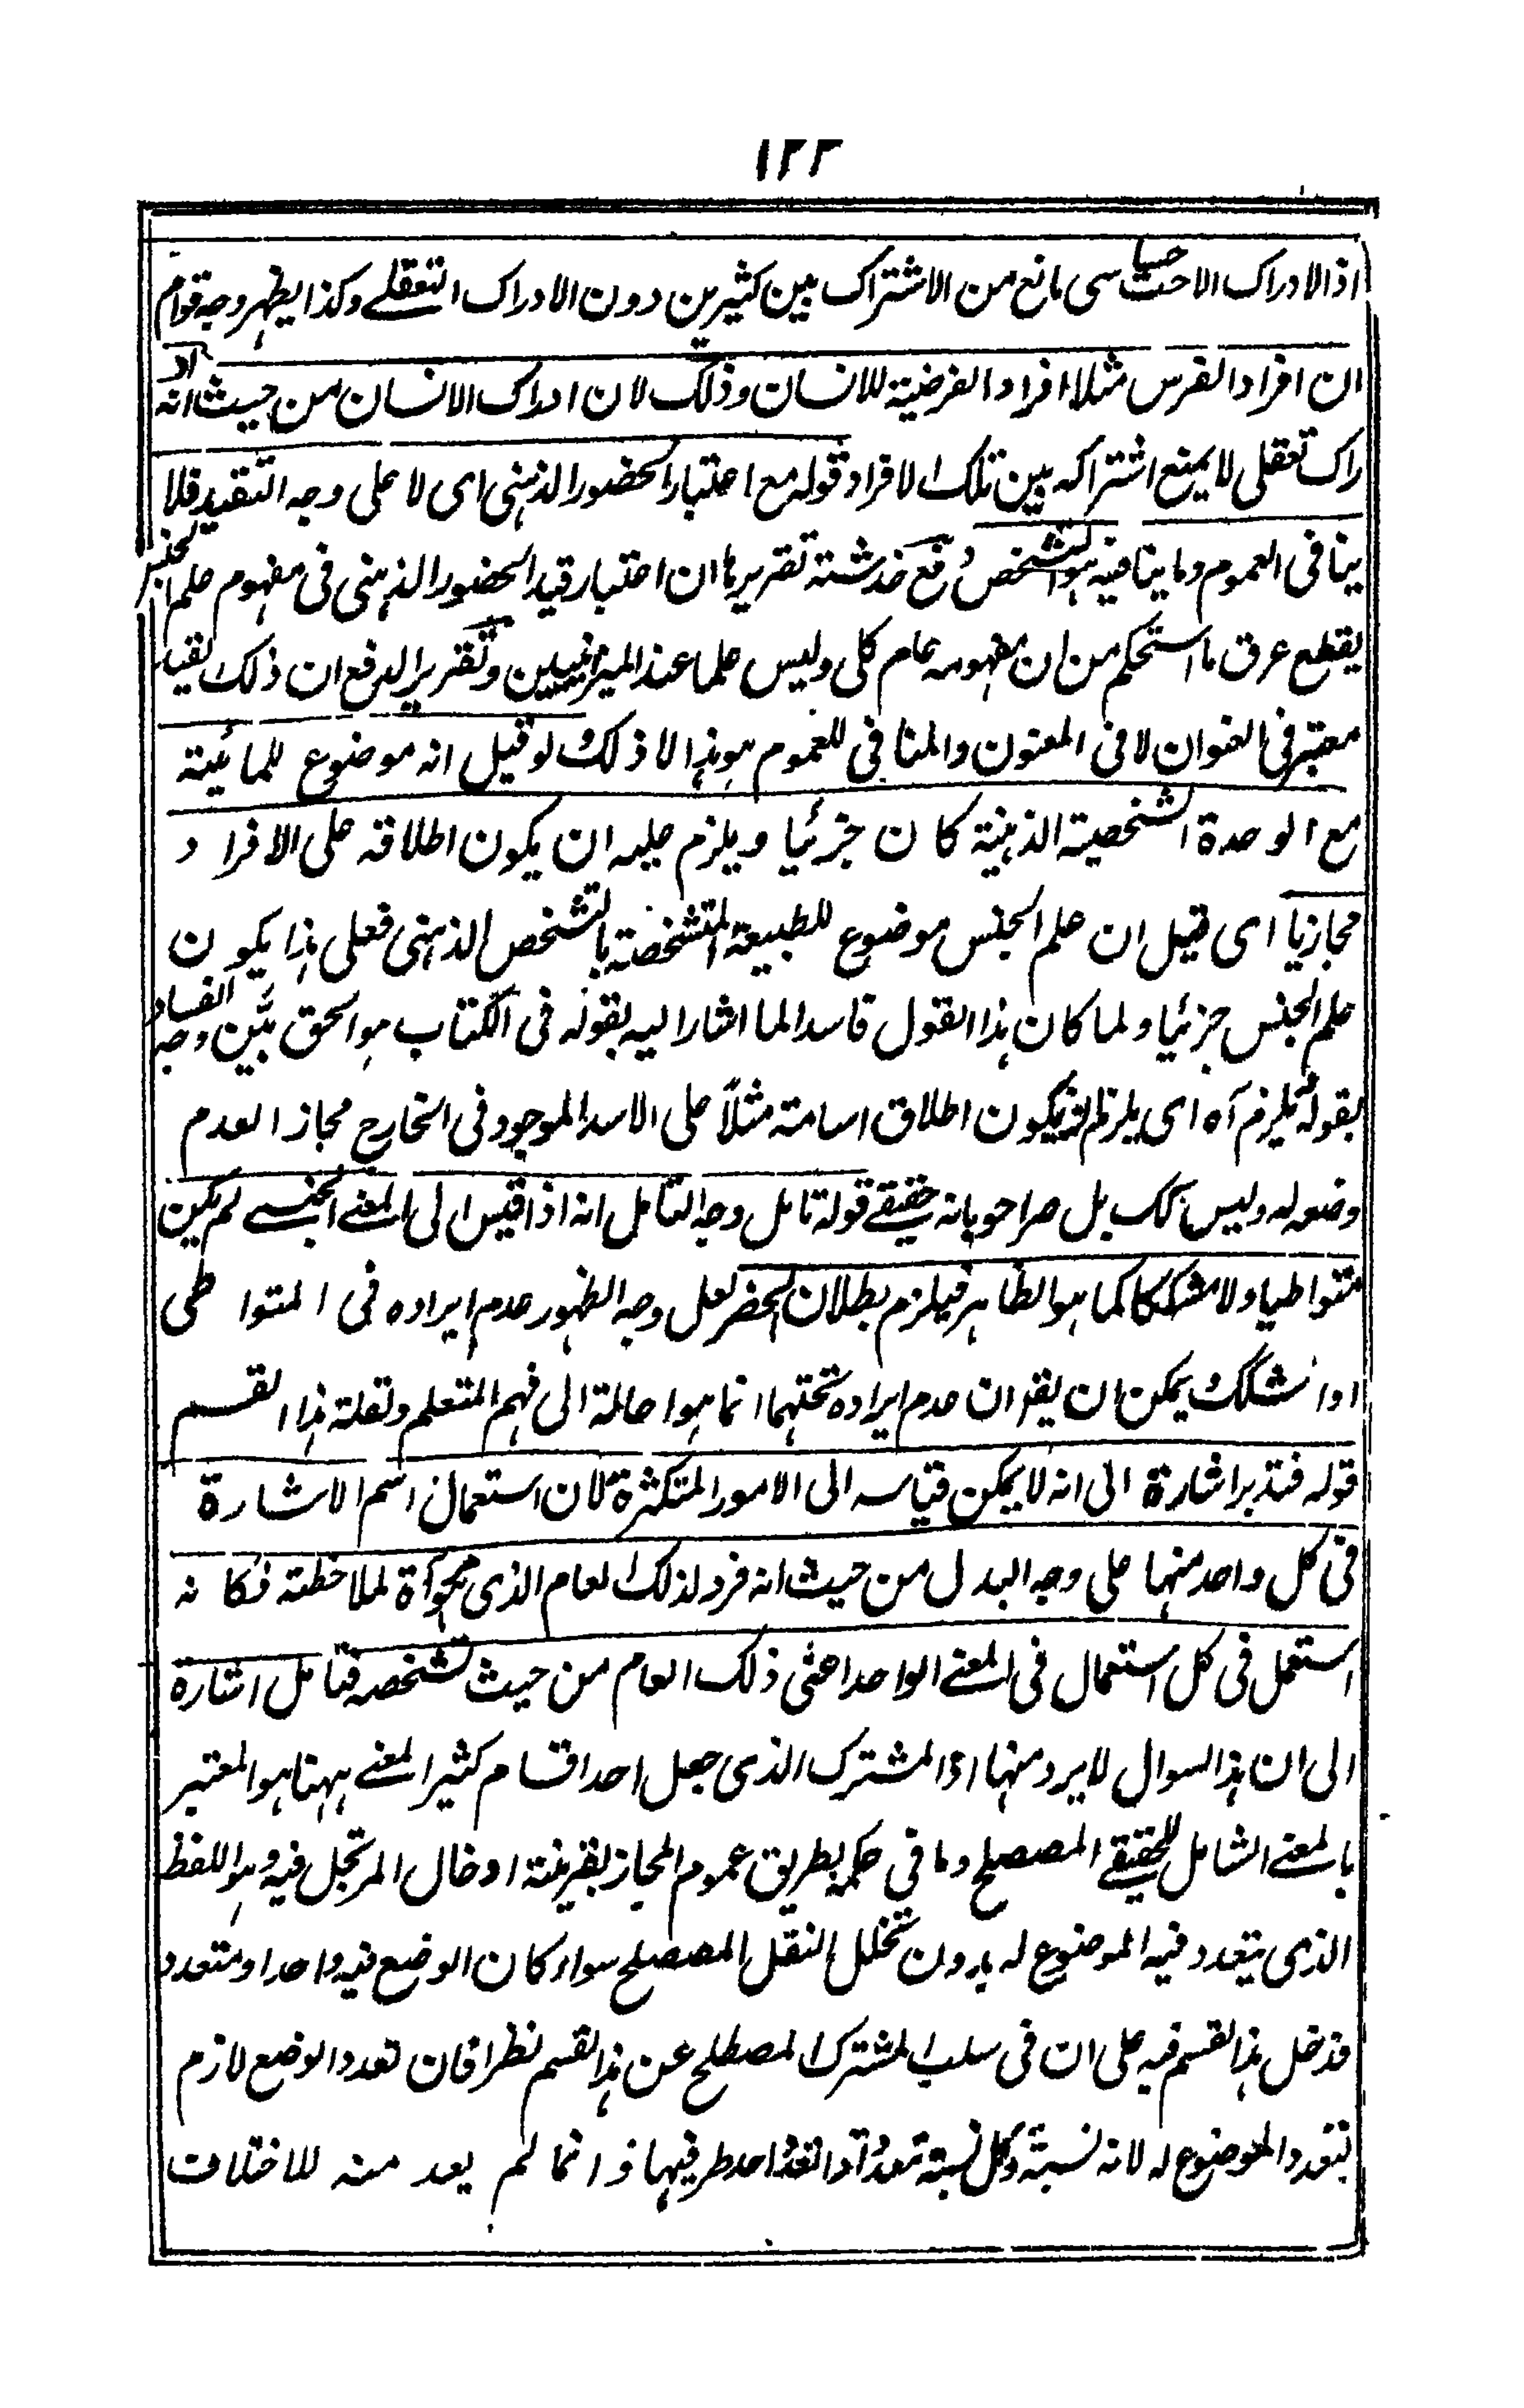 ١٢٢
اذ الادراك الاحساسى مانع من الاشتراك بين كثيرين دون الادراك التعقلے وكذا يظهر وجه قوام
ان افراد الفرس مثلا افراد الفرضية للانسان وذلك لان ادراك الانسان من حيث انه اد
راك تعقلى لا يمنع اشتراكه بين تلك الافراد قوله مع اعتبار الحضور الذهنى اى لا على وجه التقييد فلا
ينافى العموم وما ينافيه هو التشخص دفع خدشة تقريرها ان اعتبار قيد الحضور الذهنى فى مفهوم علم الجنس
يقطع عرق ما استحكم من ان مفهومه عام كلى وليس علما عند الميزانيين وتقرير الدفع ان ذلك القيد
معتبر فى العنوان لا فى المعنون والمنافى للعموم هو هذا لا ذلك لو قيل انه موضوع للمائية
مع الوحدة الشخصية الذهنية كان جزئيا ويلزم عليه ان يكون اطلاقه على الافراد
مجازيا اى قيل ان علم الجنس موضوع للطبيعة المتشخصة بالتشخص الذهنى فعلى هذا يكون
علم الجنس جزئيا ولما كان هذا القول فاسدا لما اشار اليه بقوله فى الكتاب هو الحق بيّن وجه الفساد
بقوله يلزم آه اى يلزم ان يكون اطلاق اسامة مثلاً على الاسد الموجود فى الخارج مجازا لعدم
وضعه له وليس كك بل صرحوا بانه حقيقے قوله تامل وجه التامل انه اذا قيس الى المعنے الجنسے لم يكن
متواطيا ولا مشككا كما هو الظاهر فيلزم بطلان الحصر لعل وجه الظهور عدم ايراده فى المتواطى
او المشكك ويمكن ان يقر ان عدم ايراده تحتهما انما هو احالة الى فهم المتعلم ولقلة هذا القسم
قوله فتدبر اشارة الى انه لا يمكن قياسه الى الامور المتكثرة لان استعمال اسم الاشارة
فى كل واحد منها على وجه البدل من حيث انه فرد لذلك العام الذى هو مرآة لملاحظته فكانه
استعمل فى كل استعمال فى المعنے الواحد اعنى ذلك العام من حيث تشخصه فتامل اشارة
الى ان هذا السوال لا يرد منها اذ المشترك الذى جعل احد اقسام كثير المعنے ههنا هو المعتبر
بالمعنے الشامل للحقيقے المصطلح وما فى حكمه بطريق عموم المجاز بقرينة ادخال المرتجل فيه وهو اللفظ
الذى يتعدد فيه الموضوع له بدون تخلل النقل المصطلح سواء كان الوضع فيه واحدا ومتعدد
فدخل هذا القسم فيه على ان فى سلب المشترك المصطلح عن هذا القسم نظرا فان تعدد الوضع لازم
بتعدد الموضوع له لانه نسبة وكل نسبة تعددت اذا تعدد احد طرفيها وانما لم يعد منه للاختلاف